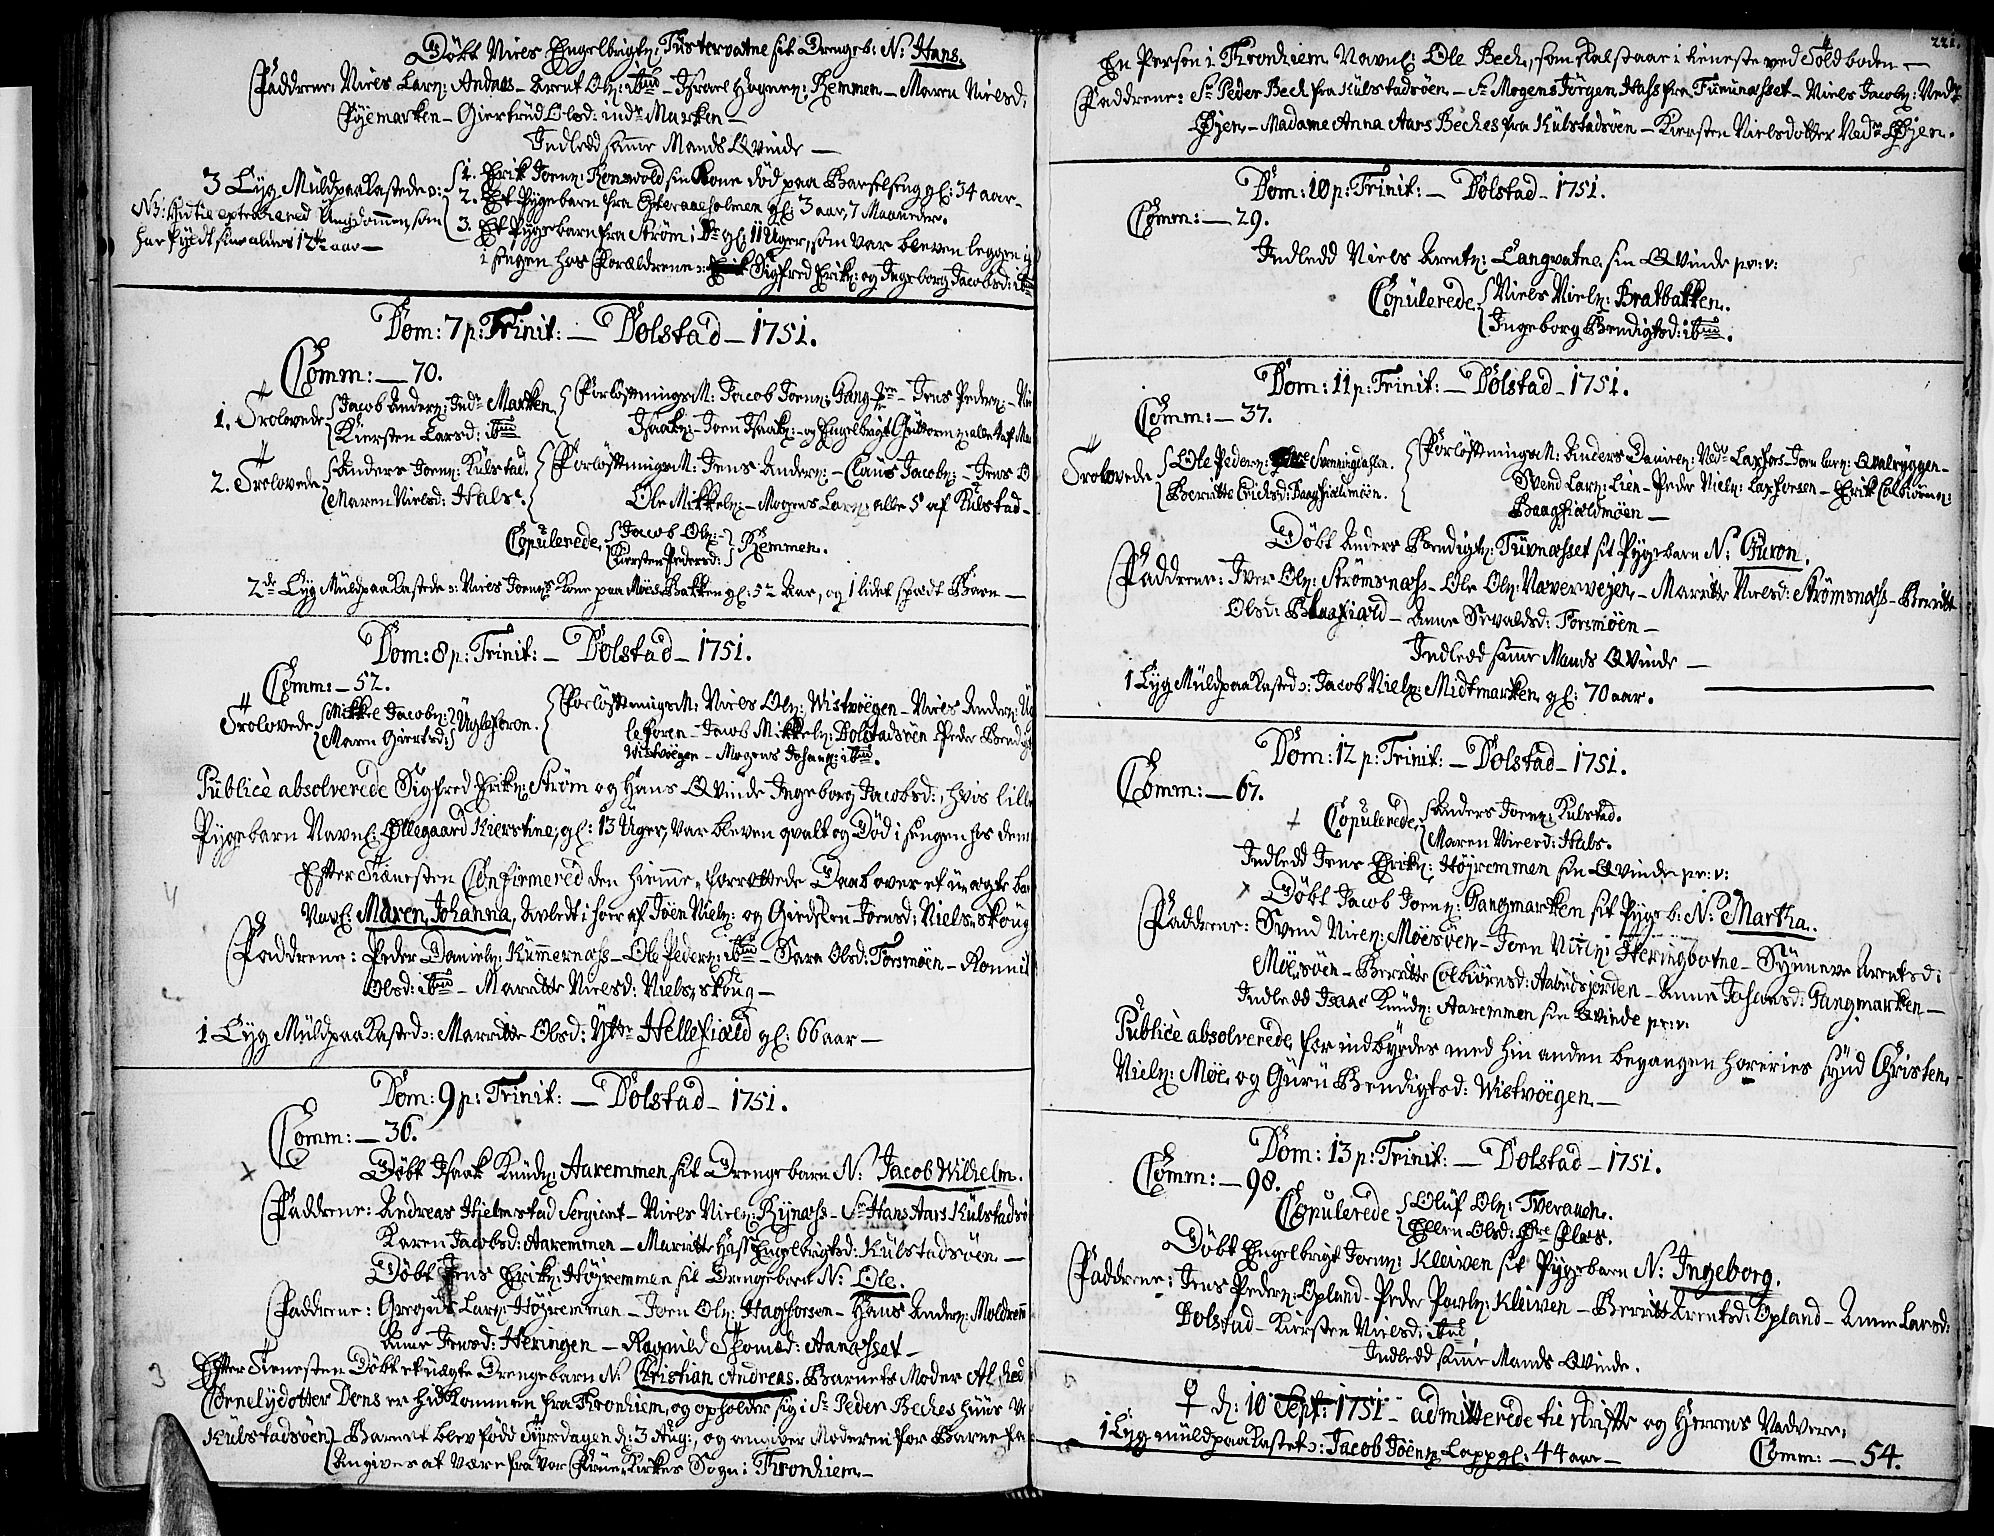 Döbt Niels Engelbrigtz: Tustervatne sit Drengeb: N: Hans.
Faddrene: Niels Larz: Andaas – Arent Olz: ibid – Israel Hagenz: Remmen – Maren Nielsd:
Ryemarken – Giertrud Olsd: indr Marken –
Indledd samme Mands Qvinde –
3 Lyg Muldpaakastede ɔ: 1. Erik Joenz: Ronsvold sin Kone død paa Barselseng gl: 34 aar –
2. Et Pygebarn fra Ytteraaeholmen gl: 3 aar, 7 Maaneder.
3. Et Pygebarn fra Strøm i gl: 11 Uger, som var bleven leggen
i sengen hos Forældrene ɔ: Sigfred Erikz: og Ingeborg Jacobsd: ibid
har fyldt sin alders 12te aar –
Dom: 7 p: Trinit: – Dolstad – 1751.
Comm: – 70.
1. Trolovede Jacob Anderz: Indr Marken
Kiersten Larsd: ibid
Forlöftningsm: Jacob Joenz: Gang – Jens Pederz: –
Isaakz: – Joen Isaakz: – og Engelbrigt Guttormz: alle 4 af
2. Trolovede Anders Joenz: Kulstad.
Maren Nielsd: Hals.
Forlöftningsm: Jens Anderz: – Claus Jacobz: – Jens
Ole Mikkelz: – Mogens Larz: alle 5 af Kulstad –
Copulerede Jacob Olz: –
Kiersten Pedersd: Remmen.
2de Lyg Muldpaakastede ɔ: Niels Joenz: Kone paa Möes Bakken gl: 52 Aar, og 1 lidet spædt Barn –
Dom: 8 p: Trinit: – Dolstad – 1751.
Comm: – 52.
Trolovede Mikkel Jacobz:
Maren Giertsd: Ugleforen.
Forlöftningsm: Niels Olz: Wistvöegen – Niels Anderz: Ug
leforen – Jacob Mikkelz: Dolstadsöen Peder Bendigt
Wistvöegen – Mogens Johanz: ibid.
Publicè absolverede Sigfred Erikz: Ström og Hans Qvinde Ingeborg Jacobsd:, hvis lille
Pygebarn Navnl: Ollegaard Kierstine, gl: 13 Uger, var bleven qvalt og Död i sengen hos dem
Efter Tienesten Confirmered den hiemme-forrettede Daab over et uægte ba
Navnl: Maren Johanna, Avledt i hoer af Joen Nielz: og Giedsken Joensd: Niels-skoug
Faddrene: Peder Danielz: Kummernæss – Ole Pederz: ibid – Sara Olsd: Forsmöen – Ronnil
Olsd: ibid – Marritte Nielsd: Niels-skoug –
1 Lyg Muldpaakasted ɔ: Marritte Olsd: Yttr Hellefiæld gl: 66 aar –
Dom: 9 p: Trinit: – Dolstad – 1751.
Comm: – 36.
Döbt Isaak Knudz: Aaremmen sit Drengebarn N: Jacob Wilhelm.
Faddrene: Andreas Hielmstad Sergiant – Niels Nielz: Rynæss – Sr Hans Aars Kulstadsö
Karen Jacobsd: Aaremmen – Marritte Hass Engelbrigtsd: Kulstadsöen –
Döbt Jens Erikz: Höjremmen sit Drengebarn N: Ole.
Faddrene: Gregus Larz: Höjremmen – Joen Olz: Hagforsen – Hans Anderz: Moldremm
Anne Jensd: Heringen – Ragnild Thomæd: Aanæsset –
Efter Tienesten Döbt et uægte Drengebarn N. Christian Andreas. Barnets Moder
Cornelydotter Dons er hidkommen fra Tronhiem, og opholder sig i Sr Peder Beches huus
Kulstadsöen, Barnet blev född Tiirsdagen d: 3 Aug:, og angiver Moderen for Barne fa
Angives at være fra vor Frue Kirkes Sogn i Tronhiem –
221.
En Person i Tronhiem Navnl: Ole Bech, som skal staae i tieneste ved Toldboden –
Faddrene: Sr Peder Bech fra Kulstadsöen – Sr Mogens Jörgen Hass fra Turunæsset – Niels Jacobz: Nedr
Öjen – Madame Anna Aars Beches fra Kulstadsöen – Kiersten Nielsdotter Nedr Öjen.
Dom: 10 p: Trinit: – Dolstad – 1751.
Comm: – 29.
Indledd Niels Arentz: Langvatne sin Qvinde pr: v:
Copulerede Niels Nielz: Bratbakken.
Ingeborg Bendigtsd: ibid.
Dom: 11 p: Trinit: – Dolstad – 1751.
Comm: – 37.
Trolovede Ole Pederz: Svenningdahlen.
Berritte Erichsd: Baagfiældmöen.
Forlöftningsm: Anders Danielz: Nedr Laxfors – Joen Larz: Qvalryggen –
Svend Larz: Lien – Peder Nielz: Laxforsen – Erik Colbiörnz:
Baagfiældmöen –
Döbt Anders Bendigtz: Tuvnæsset sit Pygebarn N: Guron.
Faddrene: Iver Olz: Strömsnæss – Ole Olz: Naverwegen – Marritte Nielsd: Strömsnæss – Berritte
Olsd: Blaafiæld – Anne Sivaldsd: Forsmöen –
Indledd samme Mands Qvinde –
1 Lyg Muldpaakasted ɔ: Jacob Nielz: Midtmarken gl: 70 aar.
Dom: 12 p: Trinit: – Dolstad – 1751.
Comm: – 67.
Copulerede Anders Joenz: Kulstad.
Maren Nielsd: Hals.
Indledd Jens Erikz: Höjremmen sin Qvinde pr: v:
Döbt Jacob Joenz: Gangmarken sit Pygeb: N: Martha.
Faddrene: Svend Nielz: Möesöen – Joen Nielz: Heringbotne – Synneve Arentsd:
Möesöen – Berritte Colbiörnsd: Aabudsjorden – Anne Johansd: Gangmarken –
Indledd Isaac Knudz: Aaremmen sin Qvinde pr: v:
Publicè absolverede for indbyrdes med hinanden begangen horeries synd Christen
Nielz: Möe og Guru Bendigtsd: Wistvöegen –
Dom: 13 p: Trinit: – Dolstad – 1751.
Comm: – 98.
Copulerede Oluf Olz: Tveraaen.
Ellen Olsd:
Döbt Engelbrigt Joenz: Kleiven sit Pygebarn N: Ingeborg.
Faddrene: Jens Pederz: Opland – Peder Powlz: Kleiven – Berritte Arentsd: Opland – Anne Larsd:
Dolstad – Kiersten Nielsd: ibid
Indledd samme Mands Qvinde.
♀ d: 10 Sept: 1751 – admitterede til skrifte og Herrens Nadvere:
1 Lyg muldpaakastet ɔ: Jacob Joenz: Lapp gl: 44 aar –
Comm: – 54.